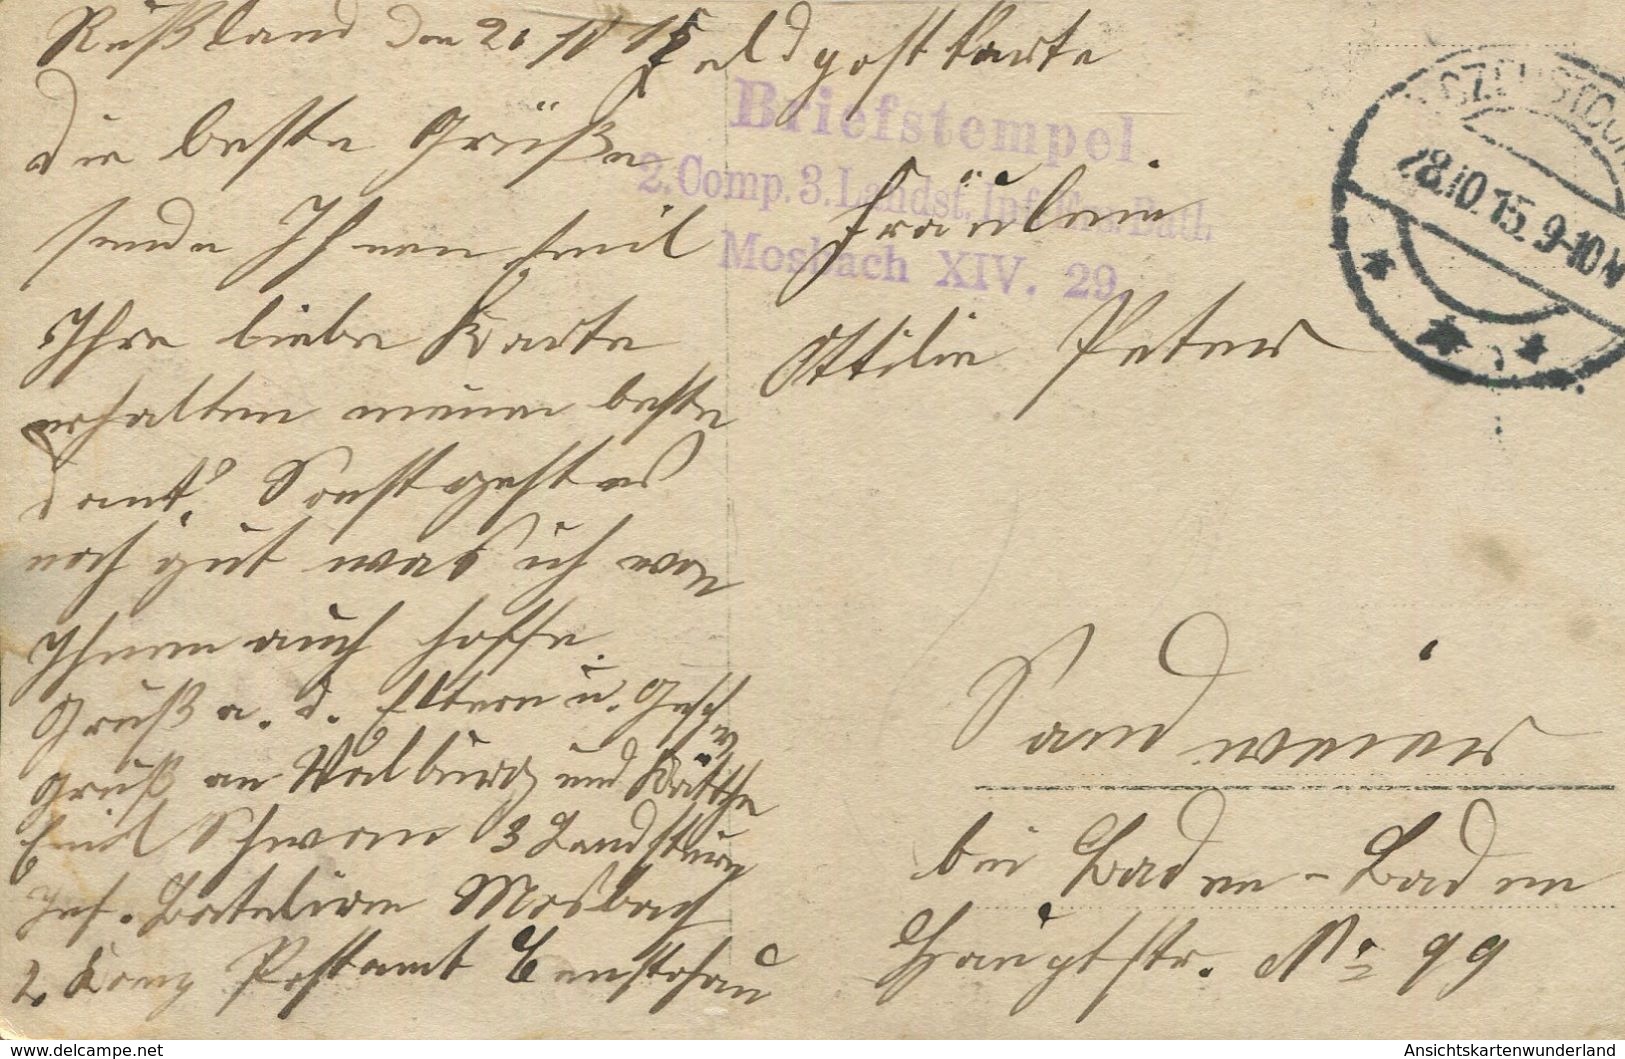 Rußland den 2. 11 15
Feldpostkarte
die beste Grüße
sende Ihnen, weil
Ihre liebe Karte
erhalten meinen besten
dank. Sonst geht es
noch gut was ich von
Ihnen auch hoffe.
Gruß a. d. Eltern u. Geschw
Gruß an Walburg und Käthe
Emil Schwan 3 Landsturm
Inf. Batalion Mosbach
2 Komp Postamt Censtochau
Briefstempel
2. Comp. 3. Landst. Inf. Ers. Batl.
Mosbach XIV. 29
CZENSTOCH
28.10.15. 9-10 N
Fräulein
Ottilie Peter
Sandweier
bei Baden-Baden
Hauptstr. No 99
www.delcampe.net
Ansichtskartenwunderland